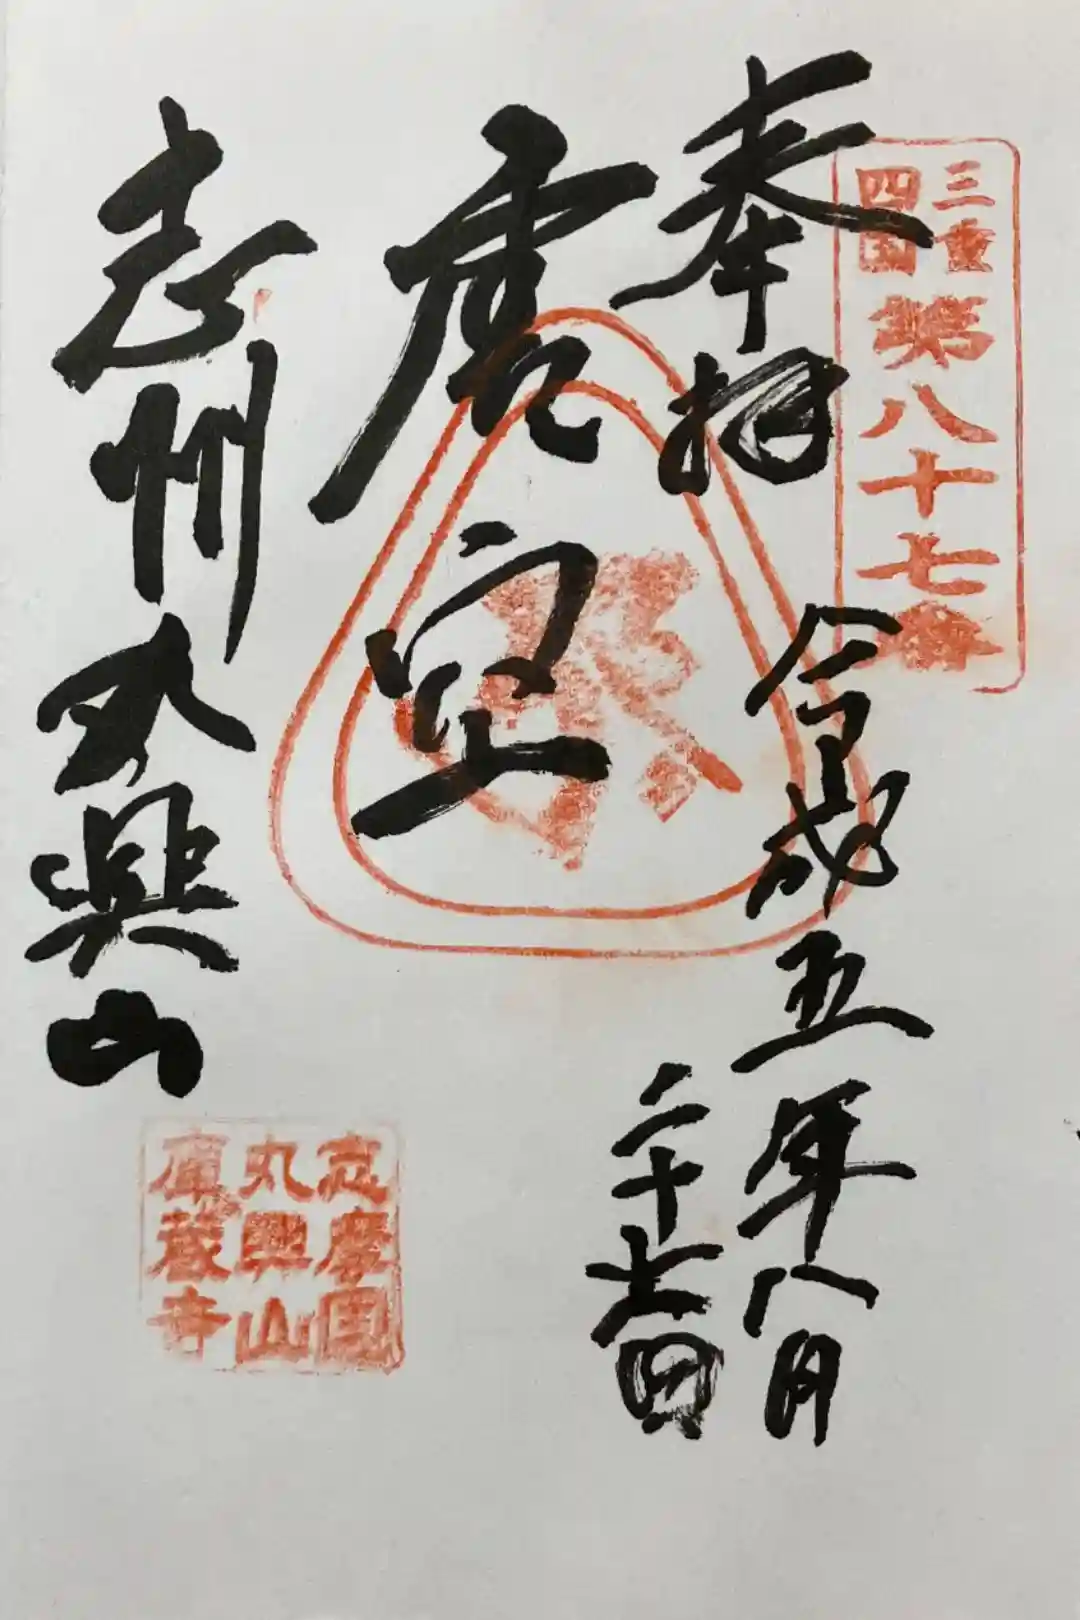 三重
四国
第八十七番
奉拝
令成五年八月
二十七日
虚空
志州丸興山
志摩國
丸興山
庫蔵寺